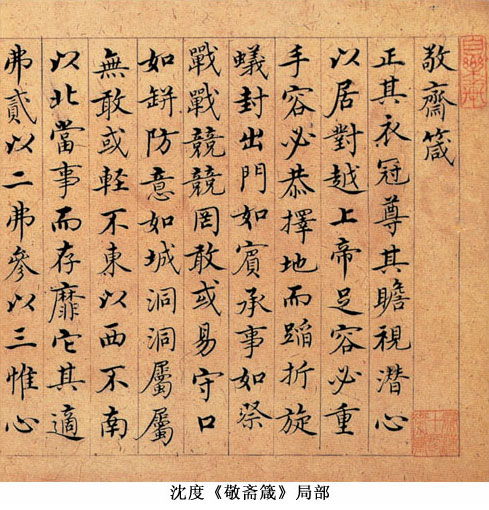 敬齋箴
正其衣冠尊其瞻視潛心
以居對越上帝足容必重
手容必恭擇地而蹈折旋
蟻封出門如賓承事如祭
戰戰競競罔敢或易守口
如缾防意如城洞洞屬屬
無敢或軽不東以西不南
以北當事而存靡它其適
弗貳以二弗參以三惟心
沈度《敬斋箴》局部